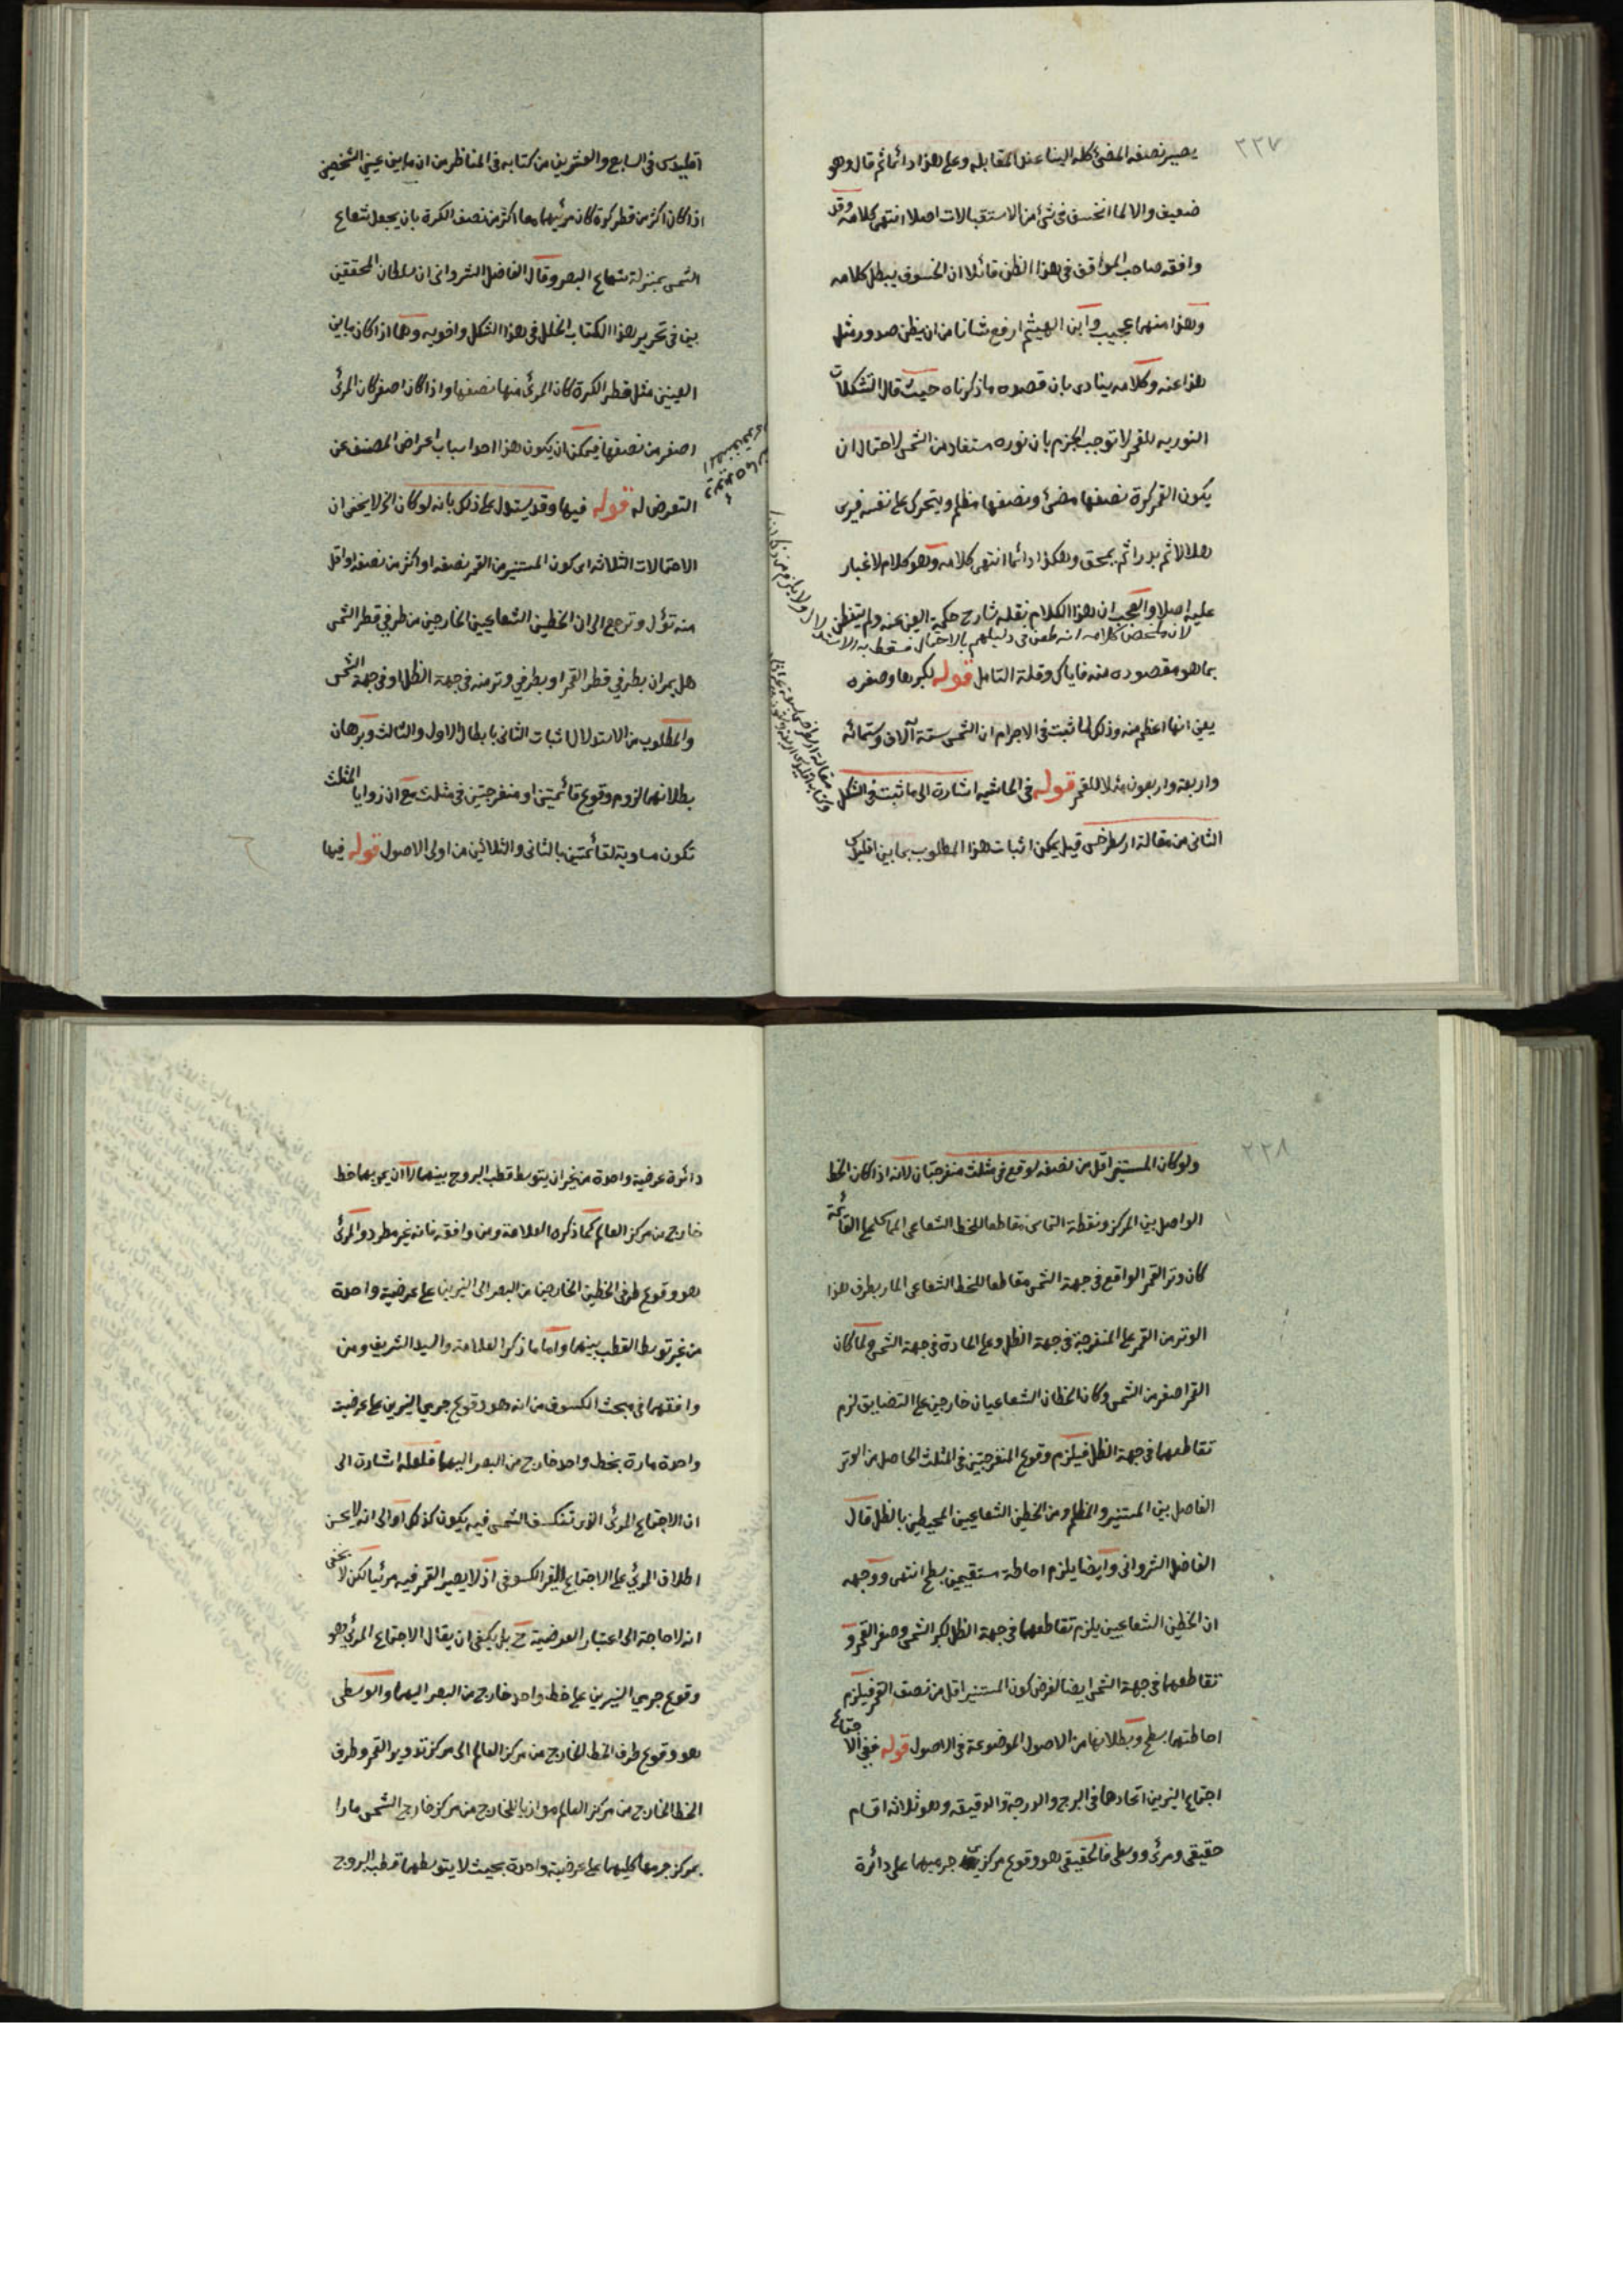 ٢٢٧
يصير نصفه المضئ كله الينا عند المقابله وعلى هذا دائما ثم قال وهو
ضعيف والا لما انخسف فى شئ من الاستقبالات اصلا انتهى كلامه وقد
وافقه صاحب المواقف فى هذا الظن قائلا ان الخسوف يبطل كلامه
وهذا منهما عجيب وابن الهيثم ارفع شانا من ان يظن صدور مثل
هذا عنه وكلامه ينادى بان قصده ما ذكرناه حيث قال التشكلات
النوريه للقمر لا توجب الجزم بان نوره مستفاد من الشمس لاحتمال ان
يكون القمر كرة نصفها مضئ ونصفها مظلم ويتحرك على نفسه فيرى
هلالا ثم بدرا ثم يمحق وهكذا دائما انتهى كلامه وهو كلام لا غبار
عليه اصلا والعجب ان هذا الكلام نقله شارح حكمة العين عنه ولم يتفطن
لان ملخص كلامه انه طعن فى دليلهم بالاحتمال فسقط به الاستدلال ولا يلزم من
بما هو مقصوده منه فاياك وقلة التامل قوله لكبرها وصغره
يعنى انها اعظم منه وذلك لما ثبت فى الاجرام ان الشمس ستة آلاف وستمائه
واربعة واربعون مثلا للقمر قوله فى الحاشيه اشارة الى ما ثبت فى الشكل
الثانى من مقالة ارسطرخس قيل يمكن اثبات هذا المطلوب بما بين اقليدس
اقليدس فى السابع والعشرين من كتابه فى المناظر من ان ما بين عينى الشخص
اذا كان اكثر من قطر كرة كان مرئيهما معا اكثر من نصف الكرة بان يجعل شعاع
الشمس بمنزلة شعاع البصر وقال الفاضل الشروانى ان سلطان المحققين
بين فى تحرير هذا الكتاب الخلل فى هذا الشكل واخويه وهما اذا كان ما بين
العينين مثل قطر الكرة كان المرئى منها نصفها واذا كان اصغر كان المرئى
اصغر من نصفها فيمكن ان يكون هذا احد اسباب اعراض المصنف عن
التعرض له قوله فيها وقد يستدل على ذلك بانه لو كان الخ لا يخفى ان
الاحتمالات الثلاثه اى كون المستنير من القمر نصفه او اكثر من نصفه او اقل
منه تؤل وترجع الى ان الخطين الشعاعيين الخارجين من طرفي قطر الشمس
هل يمران بطرفي قطر القمر او بطرفي وتر منه فى جهة الظل او فى جهة الشمس
والمطلوب من الاستدلال اثبات الثانى بابطال الاول والثالث وبرهان
بطلانهما لزوم وقوع قائمتين او منفرجتين فى مثلث مع ان زوايا المثلث
تكون مساوية لقائمتين بالثانى والثلاثين من اولى الاصول قوله فيها
٢٢٨
ولو كان المستنير اقل من نصفه لوقع فى مثلث منفرجتان لانه اذا كان الخط
الواصل بين المركز ونقطة التماس مقاطعا للخط الشعاعى المماس لهما القائمة
كان وتر القمر الواقع فى جهة الشمس مقاطعا للخط الشعاعى المار بطرف هذا
الوتر من القمر على المنفرجة فى جهة الظل وعلى الحادة فى جهة الشمس ولما كان
القمر اصغر من الشمس وكان الخطان الشعاعيان خارجين على التضايق لزم
تقاطعهما فى جهة الظل فيلزم وقوع المنفرجتين فى المثلث الحاصل من الوتر
الفاصل بين المستنير والمظلم ومن الخطين الشعاعيين المحيطين بالظل قال
الفاضل الشروانى وايضا يلزم احاطة مستقيمين بسطح انتهى ووجهه
ان الخطين الشعاعيين يلزم تقاطعهما فى جهة الظل لكبر الشمس وصغر القمر و
تقاطعهما فى جهة الشمس ايضا لفرض كون المستنير اقل من نصف القمر فيلزم
احاطتهما بسطح وبطلانها من الاصول الموضوعة فى الاصول قوله ففى الاجتماع
اجتماع النيرين اتحادهما فى البرج والدرجة والدقيقه وهو ثلاثه اقسام
حقيقى ومرئى ووسطى فالحقيقى هو وقوع مركزى جرميهما على دائرة
دائرة عرضية واحدة من غير ان يتوسط قطب البروج بينهما لا ان يمر بهما خط
خارج من مركز العالم كما ذكره العلامة ومن وافقه فانه غير مطرد والمرئى
هو وقوع طرفى الخطين الخارجين من البصر الى النيرين على عرضية واحدة
من غير توسط القطب بينهما واما ما ذكر العلامة والسيد الشريف ومن
وافقهما فى مبحث الكسوف من انه هو وقوع جرمى النيرين على عرضية
واحدة مارة بخط واحد خارج من البصر اليهما فلعله اشارة الى
ان الاجتماع المرئى الذى تنكسف الشمس فيه يكون كذلك او الى انه لا يحسن
اطلاق المرئى على الاجتماع الغير الكسوفى اذ لا يصير القمر فيه مرئيا لكن لا يخفى
انه لا حاجة الى اعتبار العرضية ح بل يكفى ان يقال الاجتماع المرئى هو
وقوع جرمى النيرين على خط واحد خارج من البصر اليهما والوسطى
هو وقوع طرف الخط الخارج من مركز العالم الى مركز تدوير القمر وطرف
الخط الخارج من مركز العالم موازيا للخارج من مركز خارج الشمس مارا
بمركز جرمها كليهما على عرضية واحدة بحيث لا يتوسطهما قطب البروج